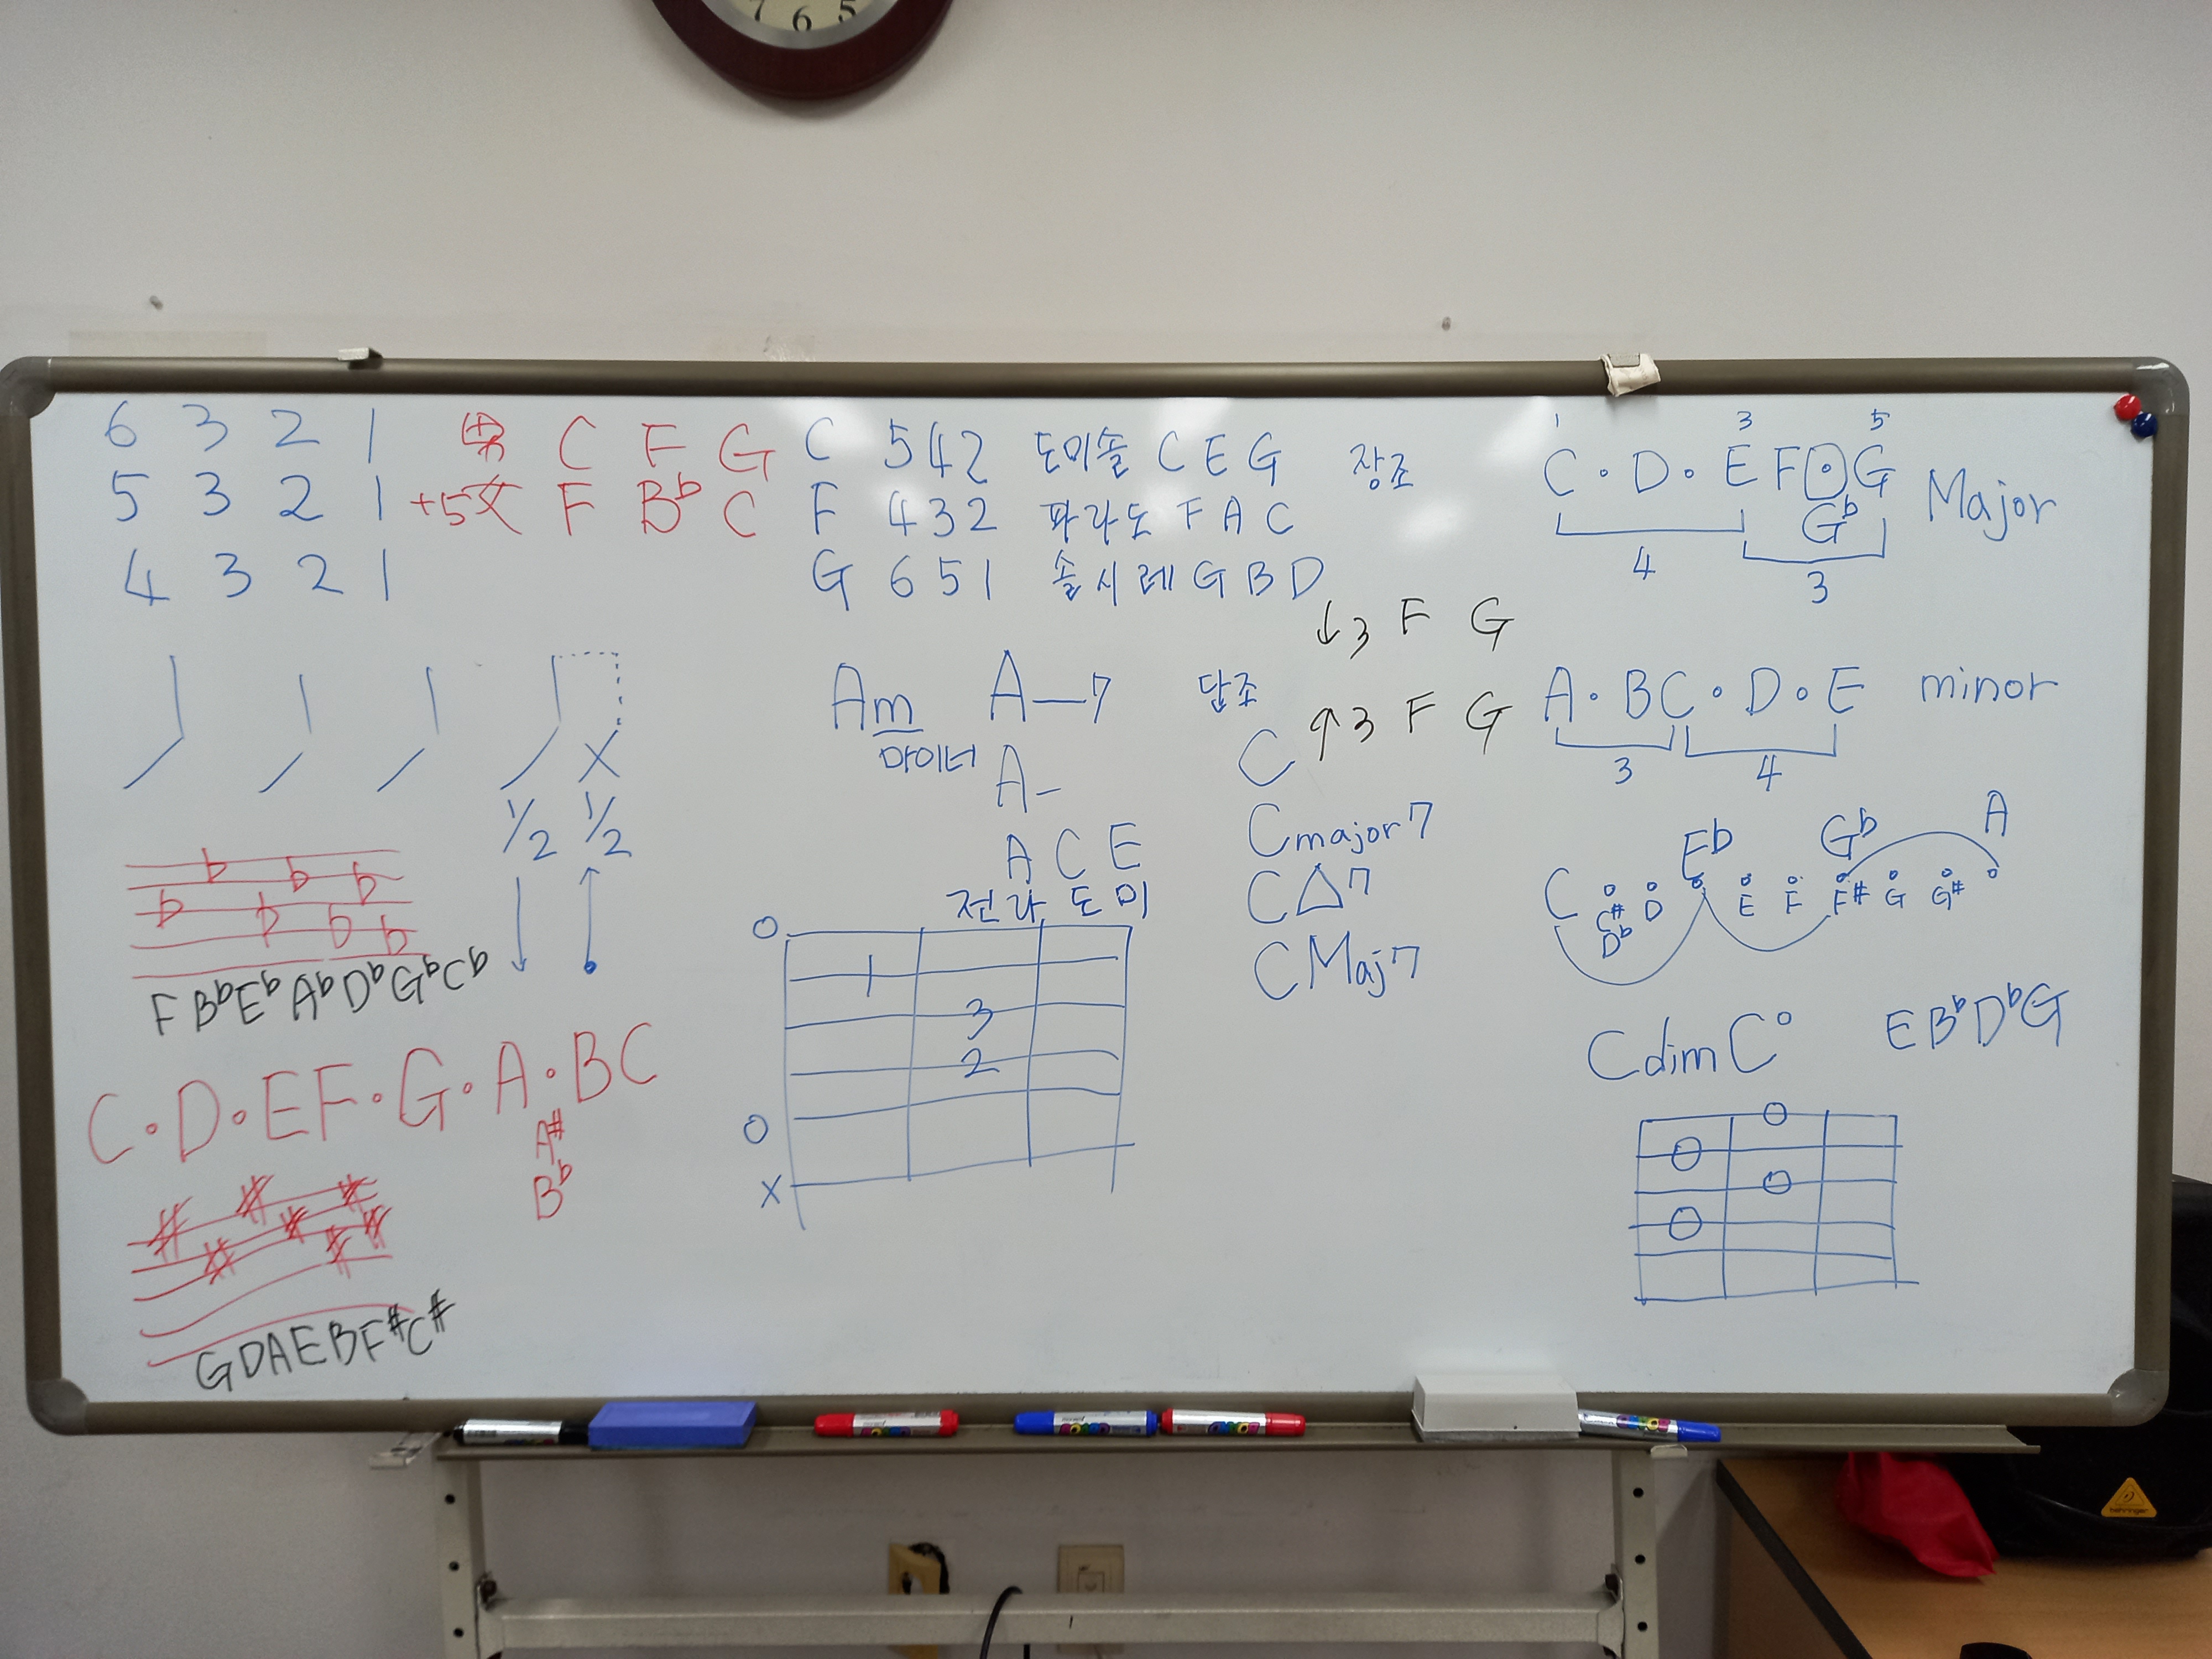 7 6 5
6 3 2 1
5 3 2 1
4 3 2 1
男 C F G
+5 女 F B♭ C
C 5 4 2 도미솔 C E G 장조
F 4 3 2 파라도 F A C
G 6 5 1 솔시레 G B D
1 3 5
C · D · E F · G Major
G♭
4 3
↓3 F G
↑3 F G
Am A—7 단조
마이너
A-
A C E
라 도 미
O
1
3
2
O
X
C
Cmajor7
C△7
CMaj7
A · B C · D · E minor
3 4
E♭ G♭ A
C C# D E F F# G G#
D♭
Cdim C° E B♭ D♭ G
X
1/2 1/2
♭ ♭ ♭ ♭ ♭ ♭ ♭
F B♭ E♭ A♭ D♭ G♭ C♭
C · D · E F · G · A · B C
A#
B♭
# # # # # # #
G D A E B F# C#
behringer